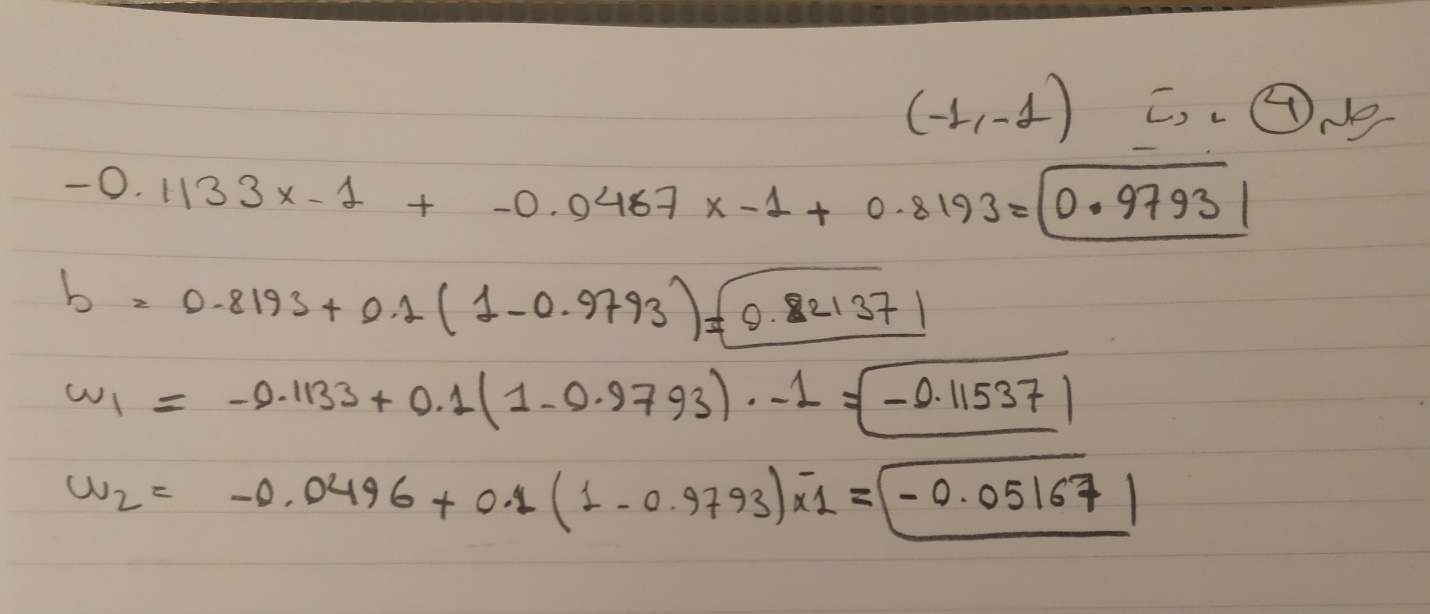 (-1,-1) ④
-0.1133 x -1 + -0.0467 x -1 + 0.8193 = 0.9793
b = 0.8193 + 0.1 ( 1 - 0.9793 ) = 0.82137
w1 = -0.1133 + 0.1 ( 1 - 0.9793 ) . -1 = -0.11537
w2 = -0.0496 + 0.1 ( 1 - 0.9793 ) x -1 = -0.05167